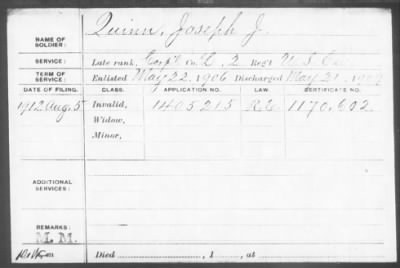 NAME OF SOLDIER: Quinn, Joseph J.
SERVICE: Late rank, Corpl Co. L, 2 Reg't U.S.
TERM OF SERVICE: Enlisted May 22, 1906 Discharged May 21, 1909
DATE OF FILING. CLASS. APPLICATION NO. LAW. CERTIFICATE NO.
1912 Aug. 5 Invalid, 1405215 1170,602
Widow,
Minor,
ADDITIONAL SERVICES:
REMARKS:
M. M.
Died , 1 , at